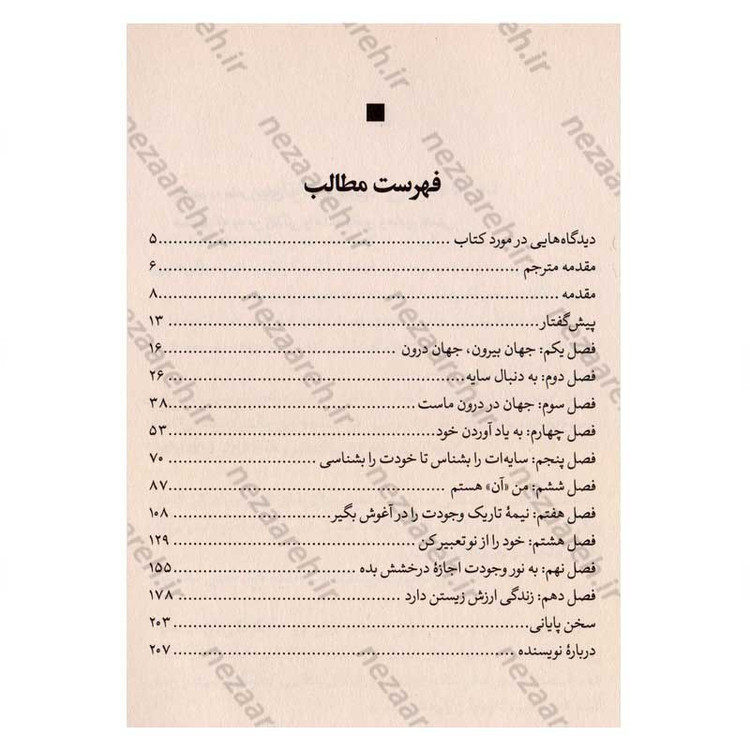 فهرست مطالب
دیدگاه‌هایی در مورد کتاب ..................................................۵
مقدمه مترجم ..................................................۶
مقدمه ..................................................۸
پیش‌گفتار..................................................۱۳
فصل یکم: جهان بیرون، جهان درون ..................................................۱۶
فصل دوم: به دنبال سایه..................................................۲۶
فصل سوم: جهان در درون ماست ..................................................۳۸
فصل چهارم: به یاد آوردن خود..................................................۵۳
فصل پنجم: سایه‌ات را بشناس تا خودت را بشناسی ..................................................۷۰
فصل ششم: من «آن» هستم ..................................................۸۷
فصل هفتم: نیمهٔ تاریک وجودت را در آغوش بگیر..................................................۱۰۸
فصل هشتم: خود را از نو تعبیر کن ..................................................۱۲۹
فصل نهم: به نور وجودت اجازهٔ درخشش بده ..................................................۱۵۵
فصل دهم: زندگی ارزش زیستن دارد ..................................................۱۷۸
سخن پایانی..................................................۲۰۳
دربارهٔ نویسنده ..................................................۲۰۷
nezaareh.ir